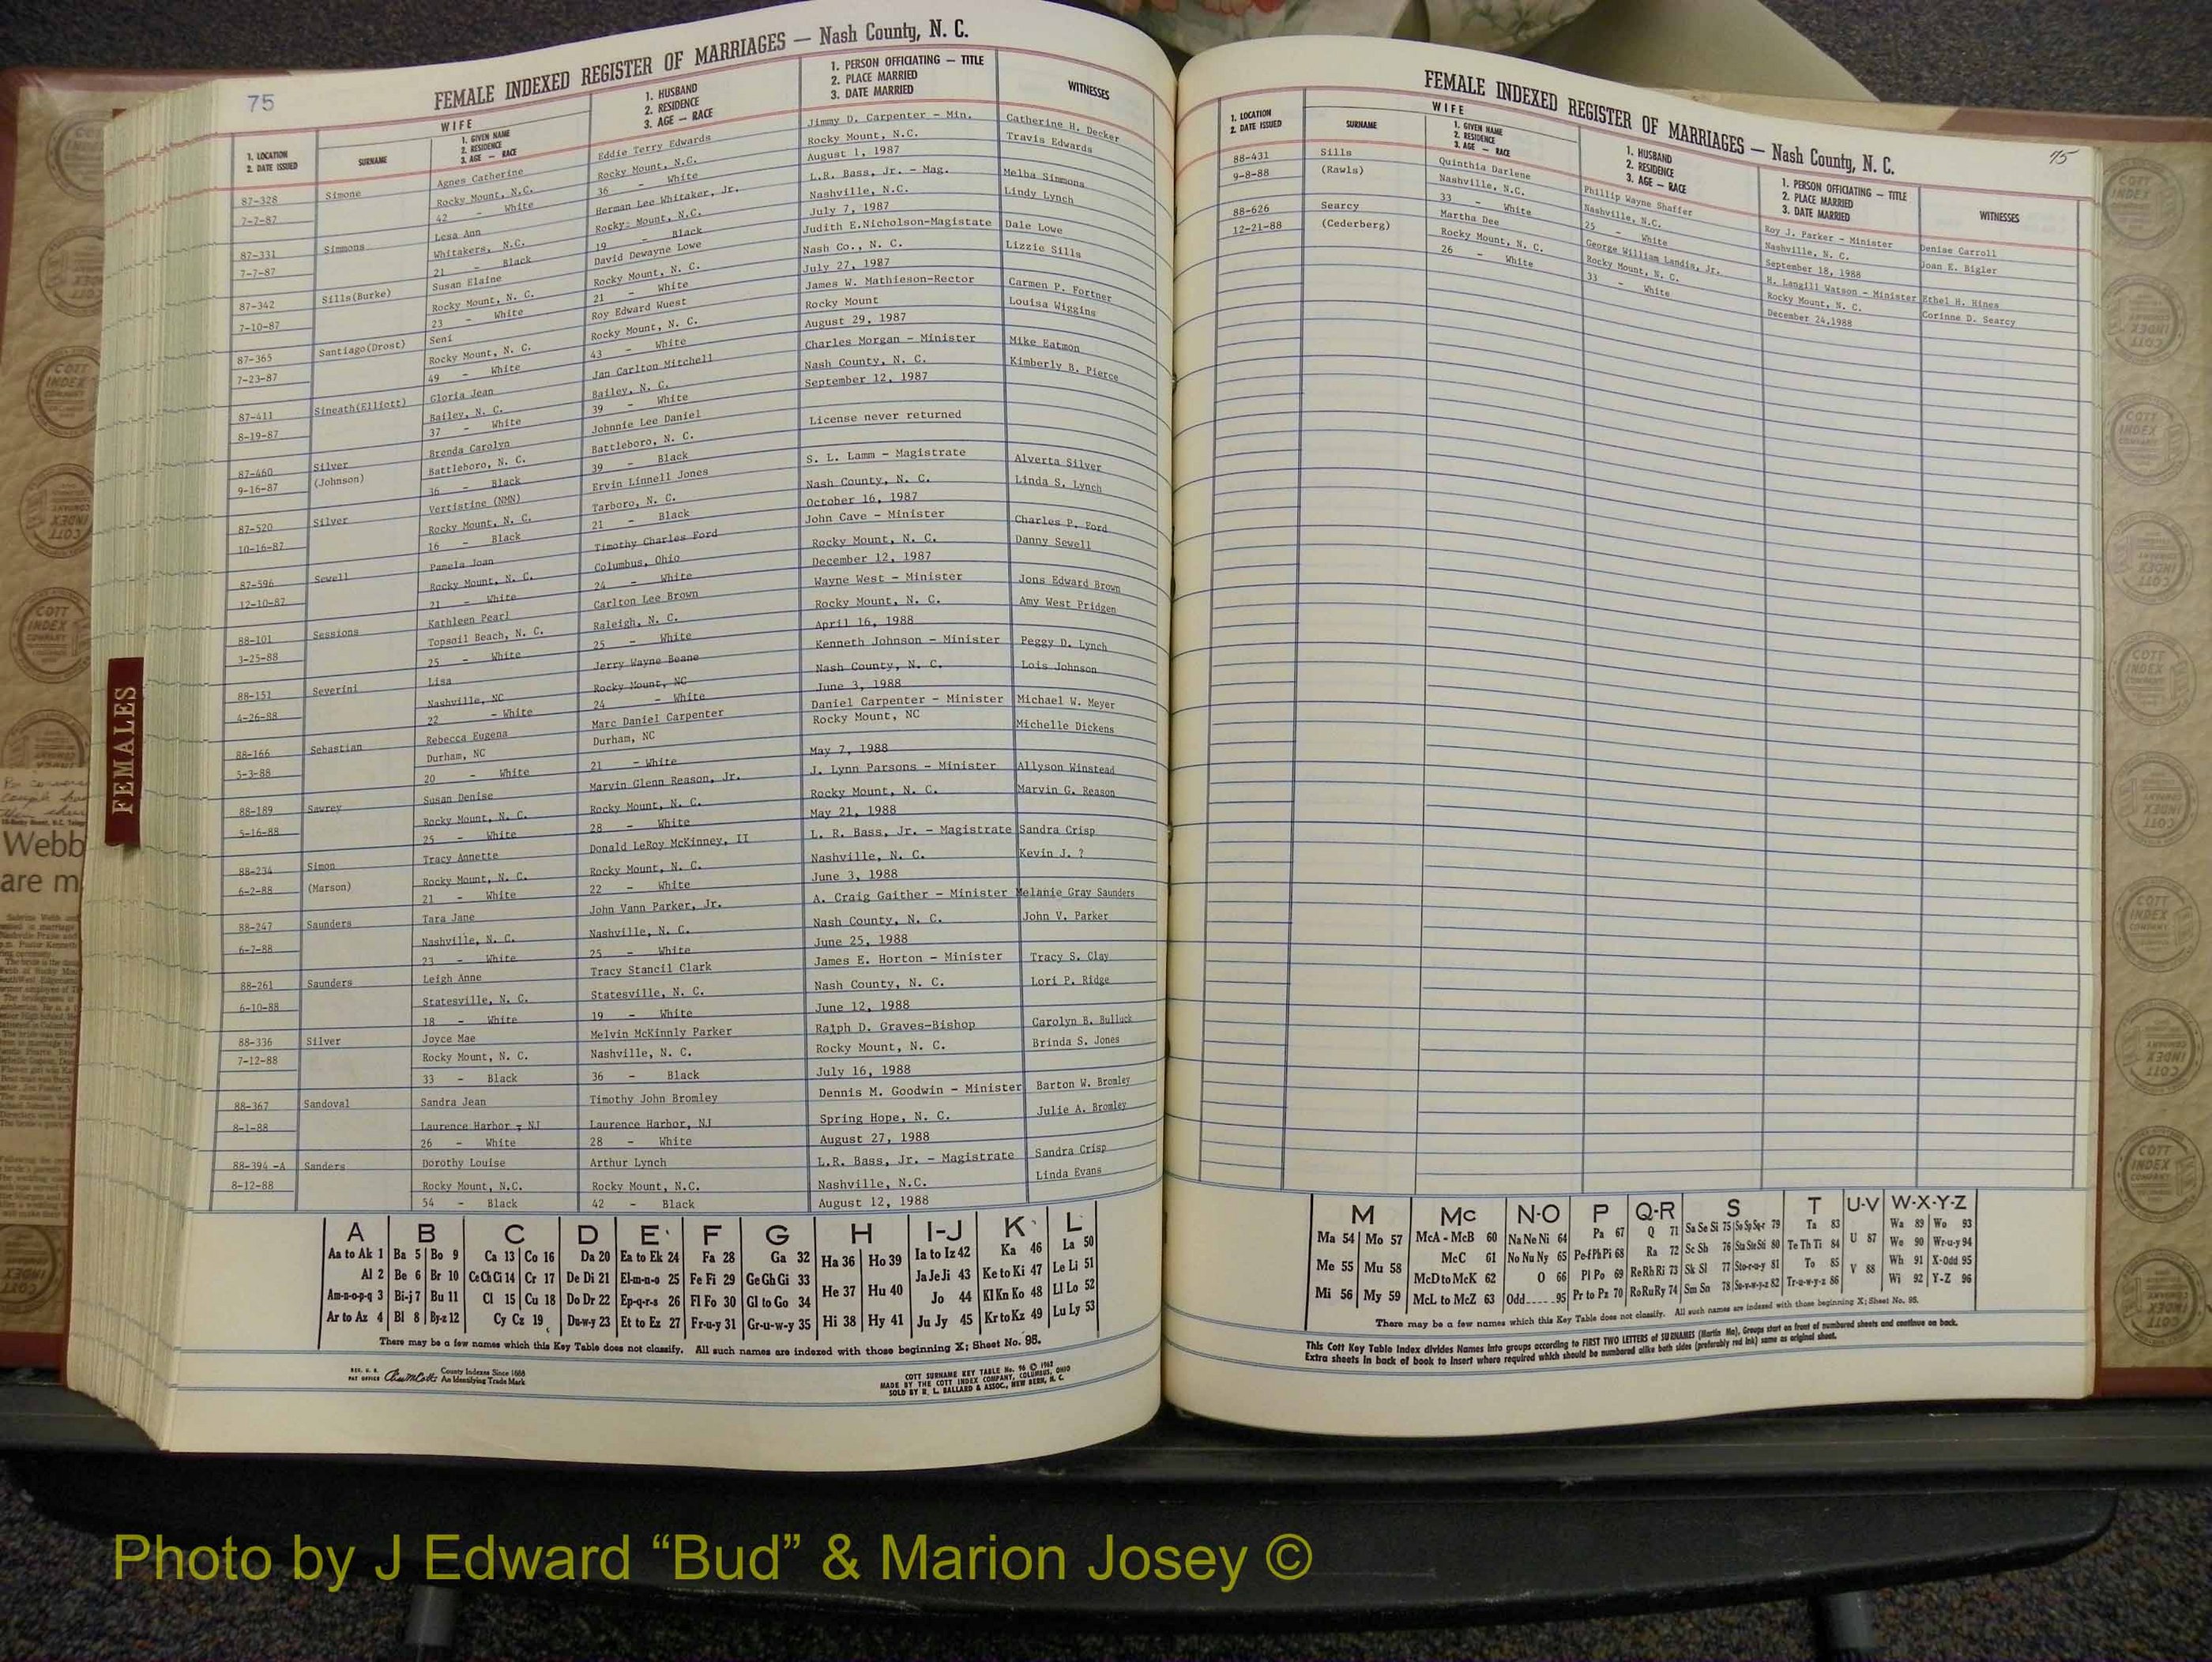 75
FEMALE INDEXED REGISTER OF MARRIAGES — Nash County, N. C.
1. LOCATION
2. DATE ISSUED
WIFE
SURNAME
1. GIVEN NAME
2. RESIDENCE
3. AGE — RACE
1. HUSBAND
2. RESIDENCE
3. AGE — RACE
1. PERSON OFFICIATING — TITLE
2. PLACE MARRIED
3. DATE MARRIED
WITNESSES
87-328 Simone Agnes Catherine Eddie Terry Edwards Jimmy D. Carpenter - Min. Catherine H. Decker
7-7-87 Rocky Mount, N.C. Rocky Mount, N.C. Rocky Mount, N.C. Travis Edwards
42 - White 36 - White August 1, 1987
87-331 Simmons Lesa Ann Herman Lee Whitaker, Jr. L.R. Bass, Jr. - Mag. Melba Simmons
7-7-87 Whitakers, N.C. Rocky Mount, N.C. Nashville, N.C. Lindy Lynch
21 - Black 19 - Black July 7, 1987
87-342 Sills(Burke) Susan Elaine David Dewayne Lowe Judith E.Nicholson-Magistate Dale Lowe
7-10-87 Rocky Mount, N. C. Rocky Mount, N. C. Nash Co., N. C. Lizzie Sills
23 - White 21 - White July 27, 1987
87-365 Santiago(Drost) Seni Roy Edward Wuest James W. Mathieson-Rector Carmen P. Fortner
7-23-87 Rocky Mount, N. C. Rocky Mount, N. C. Rocky Mount Louisa Wiggins
49 - White 43 - White August 29, 1987
87-411 Sineath(Elliott) Gloria Jean Jan Carlton Mitchell Charles Morgan - Minister Mike Eatmon
8-19-87 Bailey, N. C. Bailey, N. C. Nash County, N. C. Kimberly B. Pierce
37 - White 39 - White September 12, 1987
87-460 Silver Brenda Carolyn Johnnie Lee Daniel License never returned
9-16-87 (Johnson) Battleboro, N. C. Battleboro, N. C.
36 - Black 39 - Black
87-520 Silver Vertistine (NMN) Ervin Linnell Jones S. L. Lamm - Magistrate Alverta Silver
10-16-87 Rocky Mount, N. C. Tarboro, N. C. Nash County, N. C. Linda S. Lynch
16 - Black 21 - Black October 16, 1987
87-596 Sewell Pamela Joan Timothy Charles Ford John Cave - Minister Charles P. Ford
12-10-87 Rocky Mount, N. C. Columbus, Ohio Rocky Mount, N. C. Danny Sewell
21 - White 24 - White December 12, 1987
88-101 Sessions Kathleen Pearl Carlton Lee Brown Wayne West - Minister Jons Edward Brown
3-25-88 Topsoil Beach, N. C. Raleigh, N. C. Rocky Mount, N. C. Amy West Pridgen
25 - White 25 - White April 16, 1988
88-151 Severini Lisa Jerry Wayne Beane Kenneth Johnson - Minister Peggy D. Lynch
4-26-88 Nashville, NC Rocky Mount, NC Nash County, N. C. Lois Johnson
22 - White 24 - White June 3, 1988
88-166 Sebastian Rebecca Eugena Marc Daniel Carpenter Daniel Carpenter - Minister Michael W. Meyer
5-3-88 Durham, NC Durham, NC Rocky Mount, NC Michelle Dickens
20 - White 21 - White May 7, 1988
88-189 Savrey Susan Denise Marvin Glenn Reason, Jr. J. Lynn Parsons - Minister Allyson Winstead
5-16-88 Rocky Mount, N. C. Rocky Mount, N. C. Rocky Mount, N. C. Marvin G. Reason
25 - White 28 - White May 21, 1988
88-234 Simon Tracy Annette Donald LeRoy McKinney, II L. R. Bass, Jr. - Magistrate Sandra Crisp
6-2-88 (Marson) Rocky Mount, N. C. Rocky Mount, N. C. Nashville, N. C. Kevin J. ?
21 - White 22 - White June 3, 1988
88-247 Saunders Tara Jane John Vann Parker, Jr. A. Craig Gaither - Minister Melanie Gray Saunders
6-7-88 Nashville, N. C. Nashville, N. C. Nash County, N. C. John V. Parker
23 - White 25 - White June 25, 1988
88-261 Saunders Leigh Anne Tracy Stancil Clark James E. Horton - Minister Tracy S. Clay
6-10-88 Statesville, N. C. Statesville, N. C. Nash County, N. C. Lori P. Ridge
18 - White 19 - White June 12, 1988
88-336 Silver Joyce Mae Melvin McKinnly Parker Ralph D. Graves-Bishop Carolyn B. Bulluck
7-12-88 Rocky Mount, N. C. Nashville, N. C. Rocky Mount, N. C. Brinda S. Jones
33 - Black 36 - Black July 16, 1988
88-367 Sandoval Sandra Jean Timothy John Bromley Dennis M. Goodwin - Minister Barton W. Bromley
8-1-88 Laurence Harbor, NJ Laurence Harbor, NJ Spring Hope, N. C. Julie A. Bromley
26 - White 28 - White August 27, 1988
88-394 -A Sanders Dorothy Louise Arthur Lynch L.R. Bass, Jr. - Magistrate Sandra Crisp
8-12-88 Rocky Mount, N.C. Rocky Mount, N.C. Nashville, N.C. Linda Evans
54 - Black 42 - Black August 12, 1988
A B C D E F G H I-J K L
Aa to Ak 1 Ba 5 Bo 9 Ca 13 Co 16 Da 20 Ea to Ek 24 Fa 28 Ga 32 Ha 36 Ho 39 Ia to Iz 42 Ka 46 La 50
Al 2 Be 6 Br 10 Ce Ch Ci 14 Cr 17 De Di 21 El-m-n-o 25 Fe Fi 29 Ge Gh Gi 33 He 37 Hu 40 Ja Je Ji 43 Ke to Ki 47 Le Li 51
Am-n-o-p-q 3 Bi-j 7 Bu 11 Cl 15 Cu 18 Do Dr 22 Ep-q-r-s 26 Fl Fo 30 Gl to Go 34 Hi 38 Hy 41 Jo 44 Kl Kn Ko 48 Ll Lo 52
Ar to Az 4 Bl 8 By-z 12 Cy Cz 19 Du-w-y 23 Et to Ez 27 Fr-u-y 31 Gr-u-w-y 35 Ju Jy 45 Kr to Kz 49 Lu Ly 53
There may be a few names which this Key Table does not classify. All such names are indexed with those beginning X; Sheet No. 95.
REG. U. S. PAT OFFICE
County Indexes Since 1888
An Identifying Trade Mark
COTT SURNAME KEY TABLE No. 96 © 1962
MADE BY THE COTT INDEX COMPANY, COLUMBUS, OHIO
SOLD BY R. L. BALLARD & ASSOC., NEW BERN, N. C.
FEMALES
Webb
are m
FEMALE INDEXED REGISTER OF MARRIAGES — Nash County, N. C.
75
1. LOCATION
2. DATE ISSUED
WIFE
SURNAME
1. GIVEN NAME
2. RESIDENCE
3. AGE — RACE
1. HUSBAND
2. RESIDENCE
3. AGE — RACE
1. PERSON OFFICIATING — TITLE
2. PLACE MARRIED
3. DATE MARRIED
WITNESSES
88-431 Sills Quinthia Darlene Phillip Wayne Shaffer Roy J. Parker - Minister Denise Carroll
9-8-88 (Rawls) Nashville, N.C. Nashville, N.C. Nashville, N. C. Joan E. Bigler
33 - White 25 - White September 18, 1988
88-626 Searcy Martha Dee George William Landis, Jr. H. Langill Watson - Minister Ethel H. Hines
12-21-88 (Cederberg) Rocky Mount, N. C. Rocky Mount, N. C. Rocky Mount, N. C. Corinne D. Searcy
26 - White 33 - White December 24,1988
M Mc N-O P Q-R S T U-V W-X-Y-Z
Ma 54 Mo 57 McA - McB 60 Na Ne Ni 64 Pa 67 Q 71 Sa Se Si 75 So Sp Sq-r 79 Ta 83 U 87 Wa 89 Wo 93
Me 55 Mu 58 McC 61 No Nu Ny 65 Pe-f Ph Pi 68 Ra 72 Sc Sh 76 Sta Ste Sti 80 Te Th Ti 84 V 88 We 90 Wr-u-y 94
Mi 56 My 59 McD to McK 62 O 66 Pl Po 69 Re Rh Ri 73 Sk Sl 77 Sto-r-u-y 81 To 85 Wh 91 X-Odd 95
McL to McZ 63 Odd 95 Pr to Pz 70 Ro Ru Ry 74 Sm Sn 78 Su-v-w-y-z 82 Tr-u-w-y-z 86 Wi 92 Y-Z 96
There may be a few names which this Key Table does not classify. All such names are indexed with those beginning X; Sheet No. 95.
This Cott Key Table Index divides Names into groups according to FIRST TWO LETTERS of SURNAMES (Martin Ma), Groups start on front of numbered sheets and continue on back.
Extra sheets in back of book to insert where required which should be numbered alike both sides (preferably red ink) same as original sheet.
Photo by J Edward “Bud” & Marion Josey ©